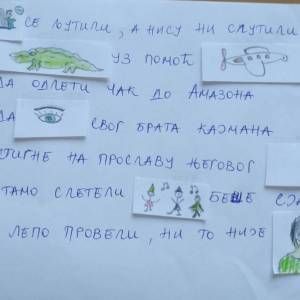 СЕ ЉУТИЛИ, А НИСУ НИ СЛУТИЛИ
УЗ ПОМОЋ
ДА ОДЛЕТИ ЧАК ДО АМАЗОНА
ДА СВОГ БРАТА КАЈМАНА
СТИГНЕ НА ПРОСЛАВУ ЊЕГОВОГ
ТАМО СЛЕТЕЛИ БЕШЕ
ЛЕПО ПРОВЕЛИ, НИ ТО НИЈЕ